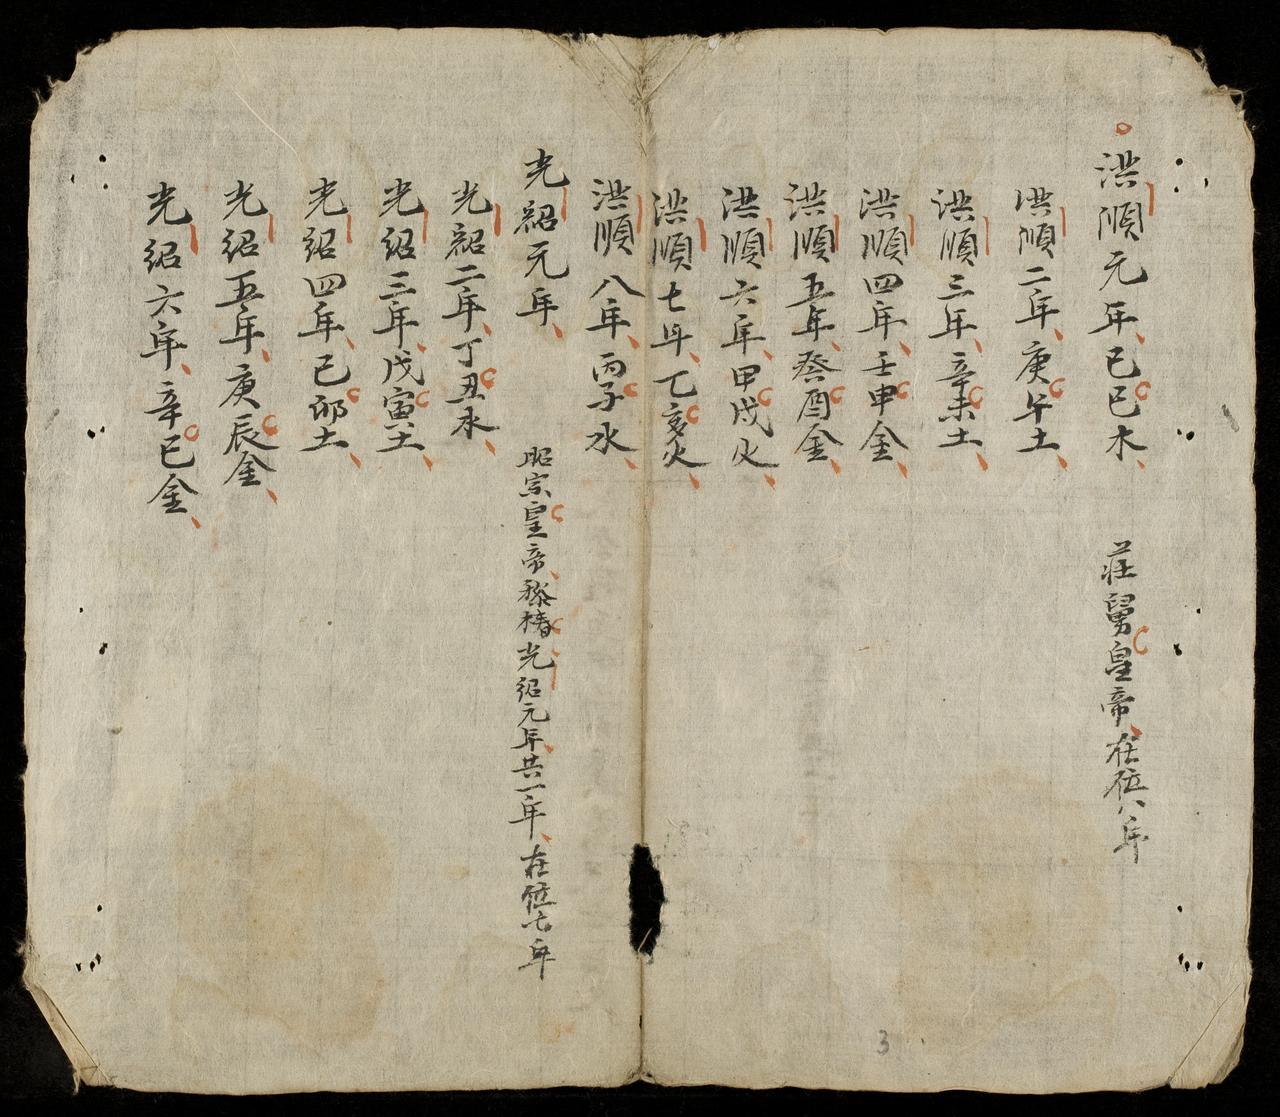 洪順元年己巳木 莊舅皇帝在位八年
洪順二年庚午土
洪順三年辛未土
洪順四年壬申金
洪順五年癸酉金
洪順六年甲戌火
洪順七年乙亥火
洪順八年丙子水
光紹元年 昭宗皇帝椅光紹元年共一年在位七年
光紹二年丁丑水
光紹三年戊寅土
光紹四年己卯土
光紹五年庚辰金
光紹六年辛巳金
3